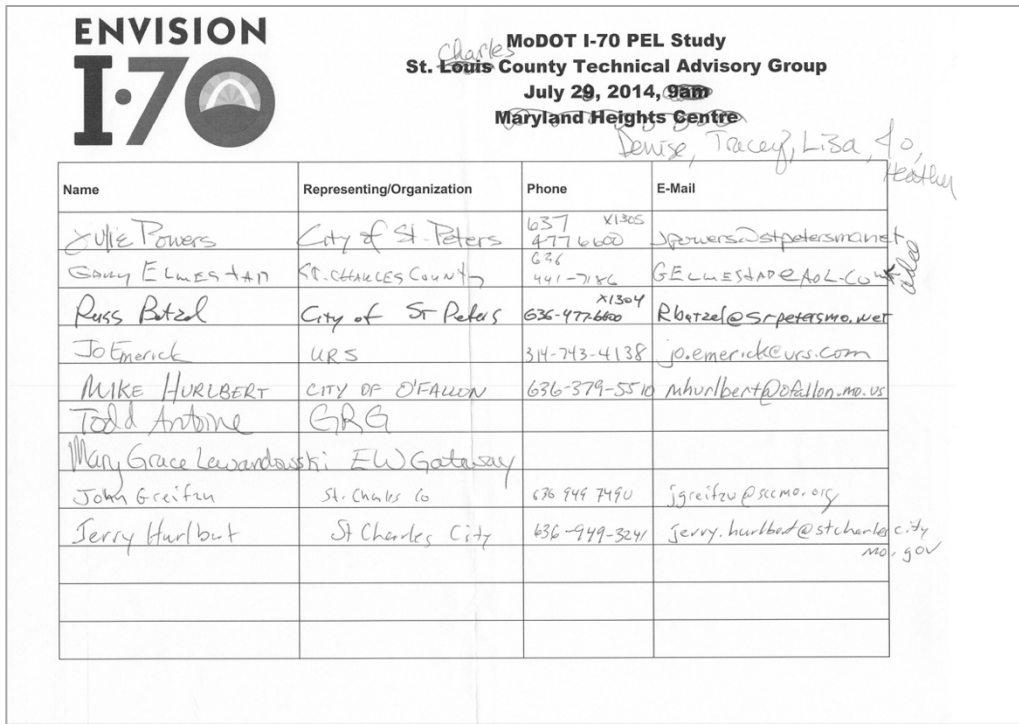 ENVISION
I-70
MoDOT I-70 PEL Study
Charles
St. Louis County Technical Advisory Group
July 29, 2014, 9am
Maryland Heights Centre
Denise, Tracey, Lisa, Jo,
Heather
Name Representing/Organization Phone E-Mail
Julie Powers City of St. Peters 637 4776600 X1305 Jpowers@stpetersmo.net
Gary Elmestad St. Charles County 636 441-7186 GELMESTAD@AOL.COM
Russ Batzel City of St Peters 636-477-6600 X1304 Rbatzel@stpetersmo.net
Jo Emerick URS 314-743-4138 jo.emerick@urs.com
MIKE HURLBERT CITY OF O'FALLON 636-379-5510 mhurlbert@ofallon.mo.us
Todd Antoine GRG
Mary Grace Lewandowski EW Gateway
John Greifzu St. Charles Co 636 949 7490 jgreifzu@sccmo.org
Jerry Hurlbut St Charles City 636-949-3241 jerry.hurlbut@stcharlescity
mo.gov